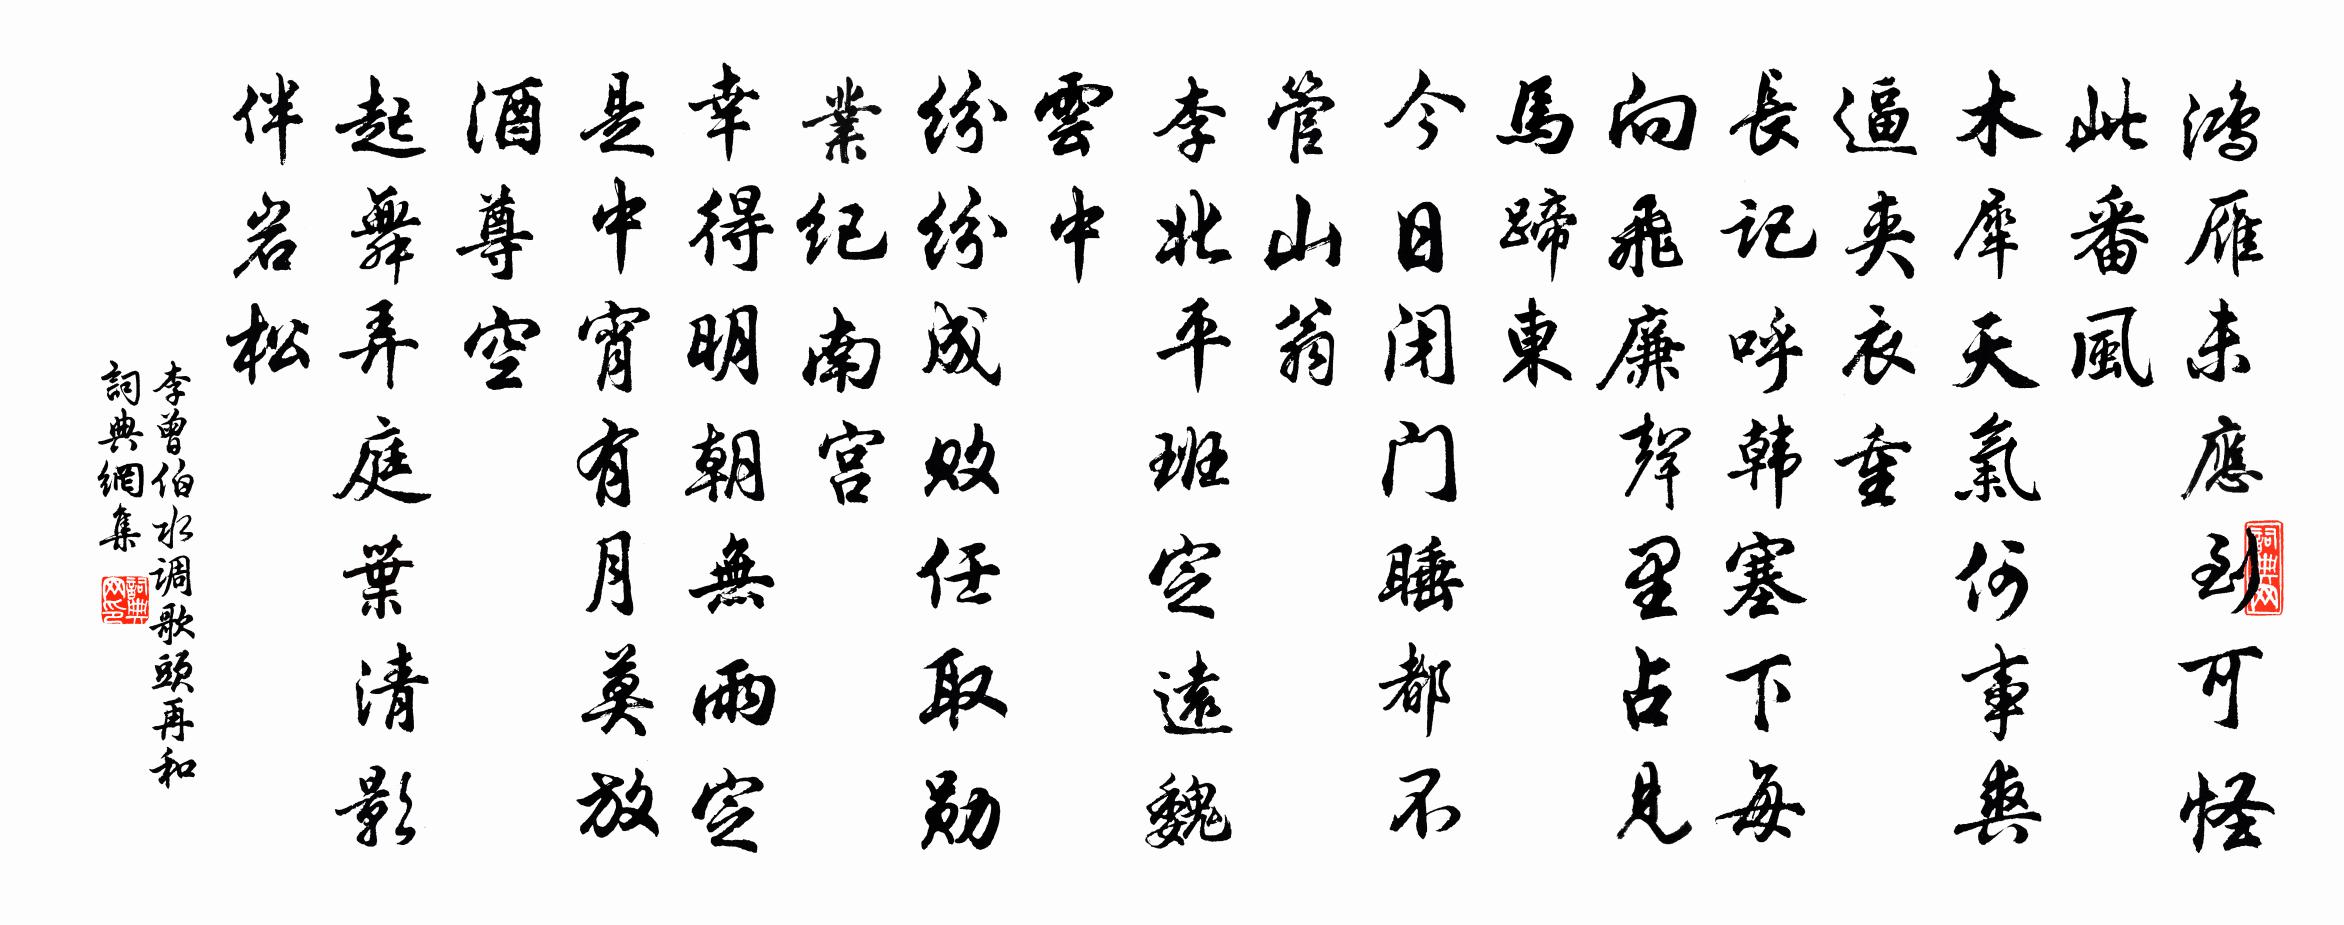 鴻雁未應到可怪
此番風
木犀天氣何事爽
逼夾衣重
長记呼韩塞下每
向飛廉聲里占見
馬蹄東
今日闭门睡都不
管山翁
李北平班定遠魏
雲中
紛紛成敗任取勋
業纪南宫
幸得明朝無雨定
是中宵有月莫放
酒尊空
起舞弄庭葉清影
伴岩松
李曾伯水调歌頭再和
詞典網集
詞典网
詞典网印